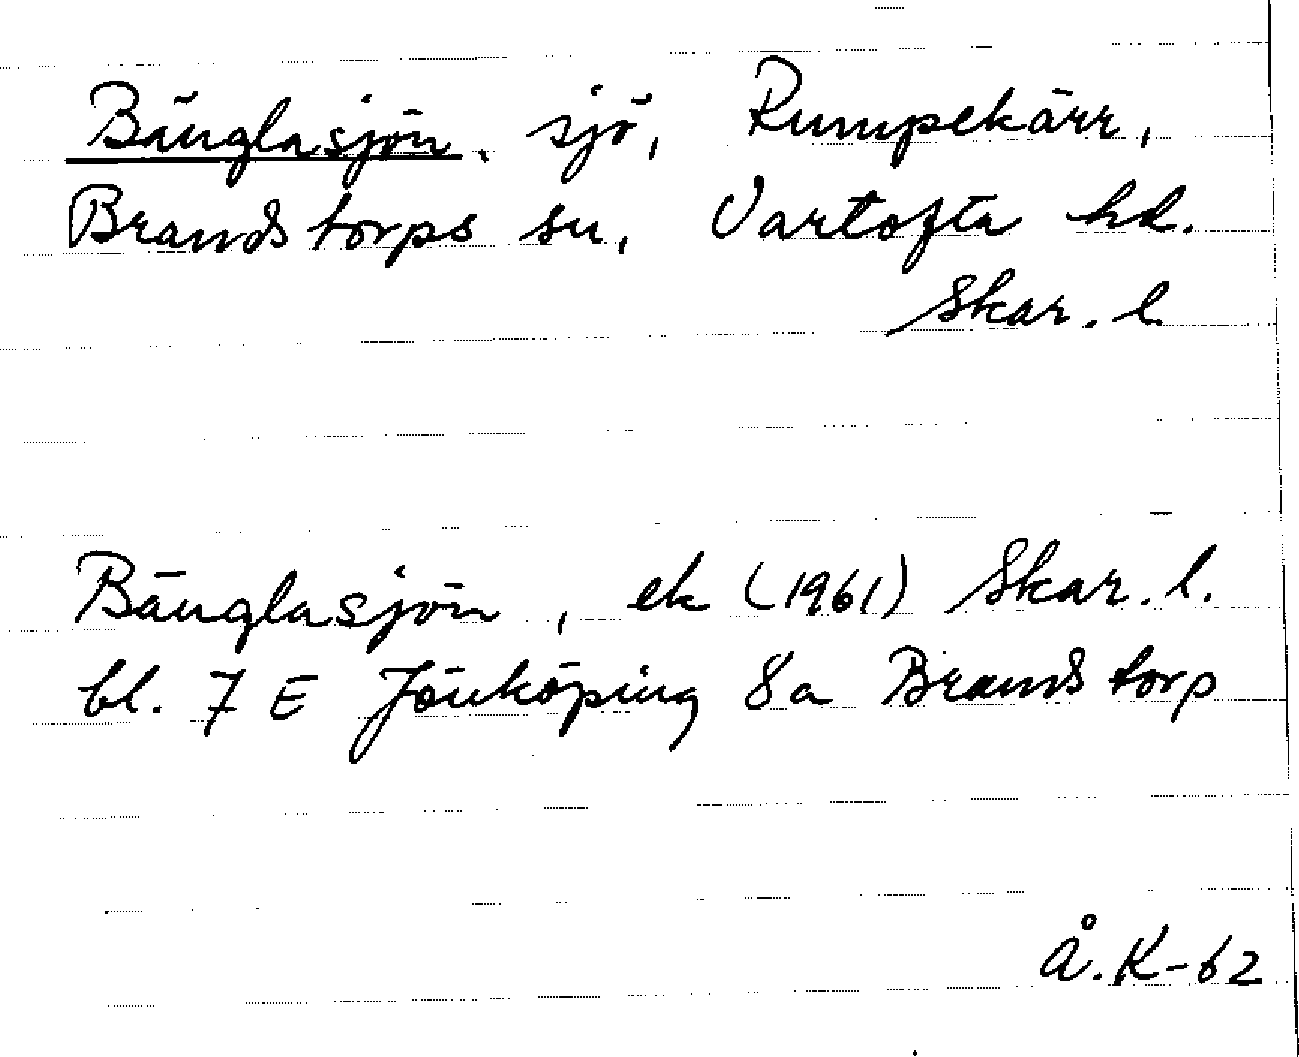 Bänglasjön, sjö, Rumpekärr,
Brandstorps sn, Vartofta hd.
Skar. l.
Bänglasjön, ek (1961) Skar. l.
bl. 7 E Jönköping 8a Brandstorp
Å.K-62